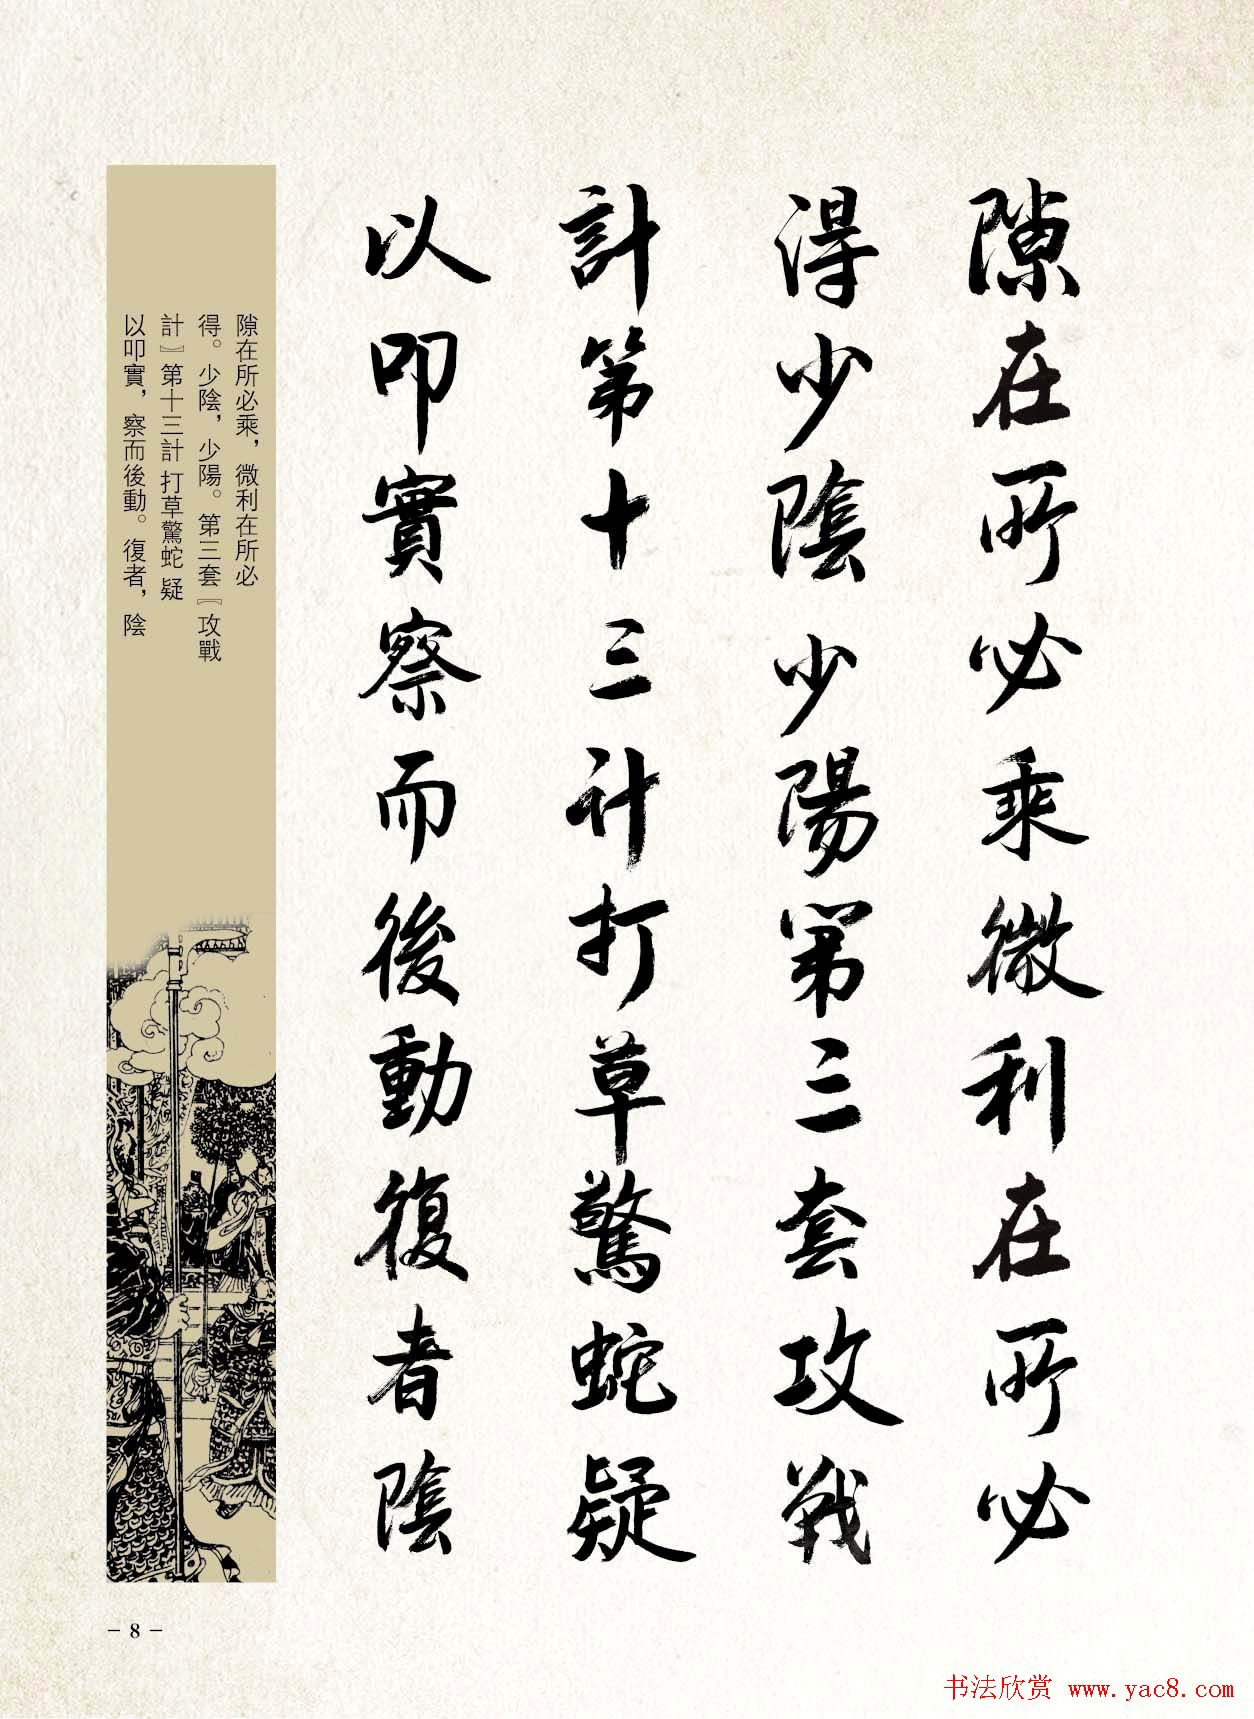 隙在所必乘微利在所必
得少陰少陽第三套攻戰
計第十三计打草驚蛇疑
以叩實察而後動復者陰
隙在所必乘，微利在所必
得。少陰，少陽。第三套〖攻戰
計〗第十三計 打草驚蛇 疑
以叩實，察而後動。復者，陰
- 8 -
书法欣赏 www.yac8.com